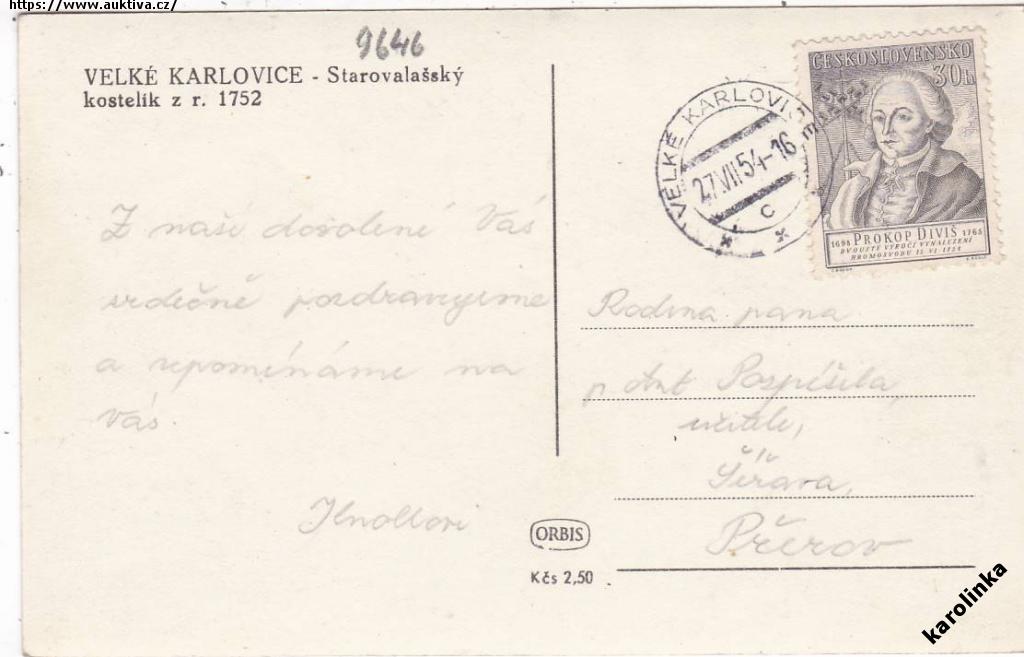 https://www.auktiva.cz/
9646
VELKÉ KARLOVICE - Starovalašský
kostelík z r. 1752
ČESKOSLOVENSKO
30h
VELKÉ KARLOVICE
27.VII.54-16
c
1698 PROKOP DIVIŠ 1765
DVOUSTÉ VÝROČÍ VYNALEZENÍ
BROMOSVODU 15 VI 1754
Z naší dovolené Vás
srdečně pozdravujeme
a vzpomínáme na
Vás.
Rodina pana
p Ant Pospíšila,
učitele,
Šířava,
Přerov
ORBIS
Kčs 2,50
karolinka